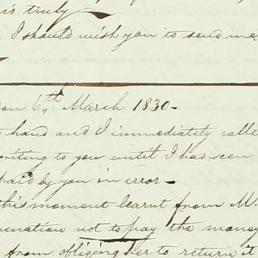 is truly
I should wish you to send me
on 6th March 1830-
hand and I immediately calle
onting to you until I had seen
paid by you in error-
this moment learnt from M
not to pay the money
from obliging her to return it